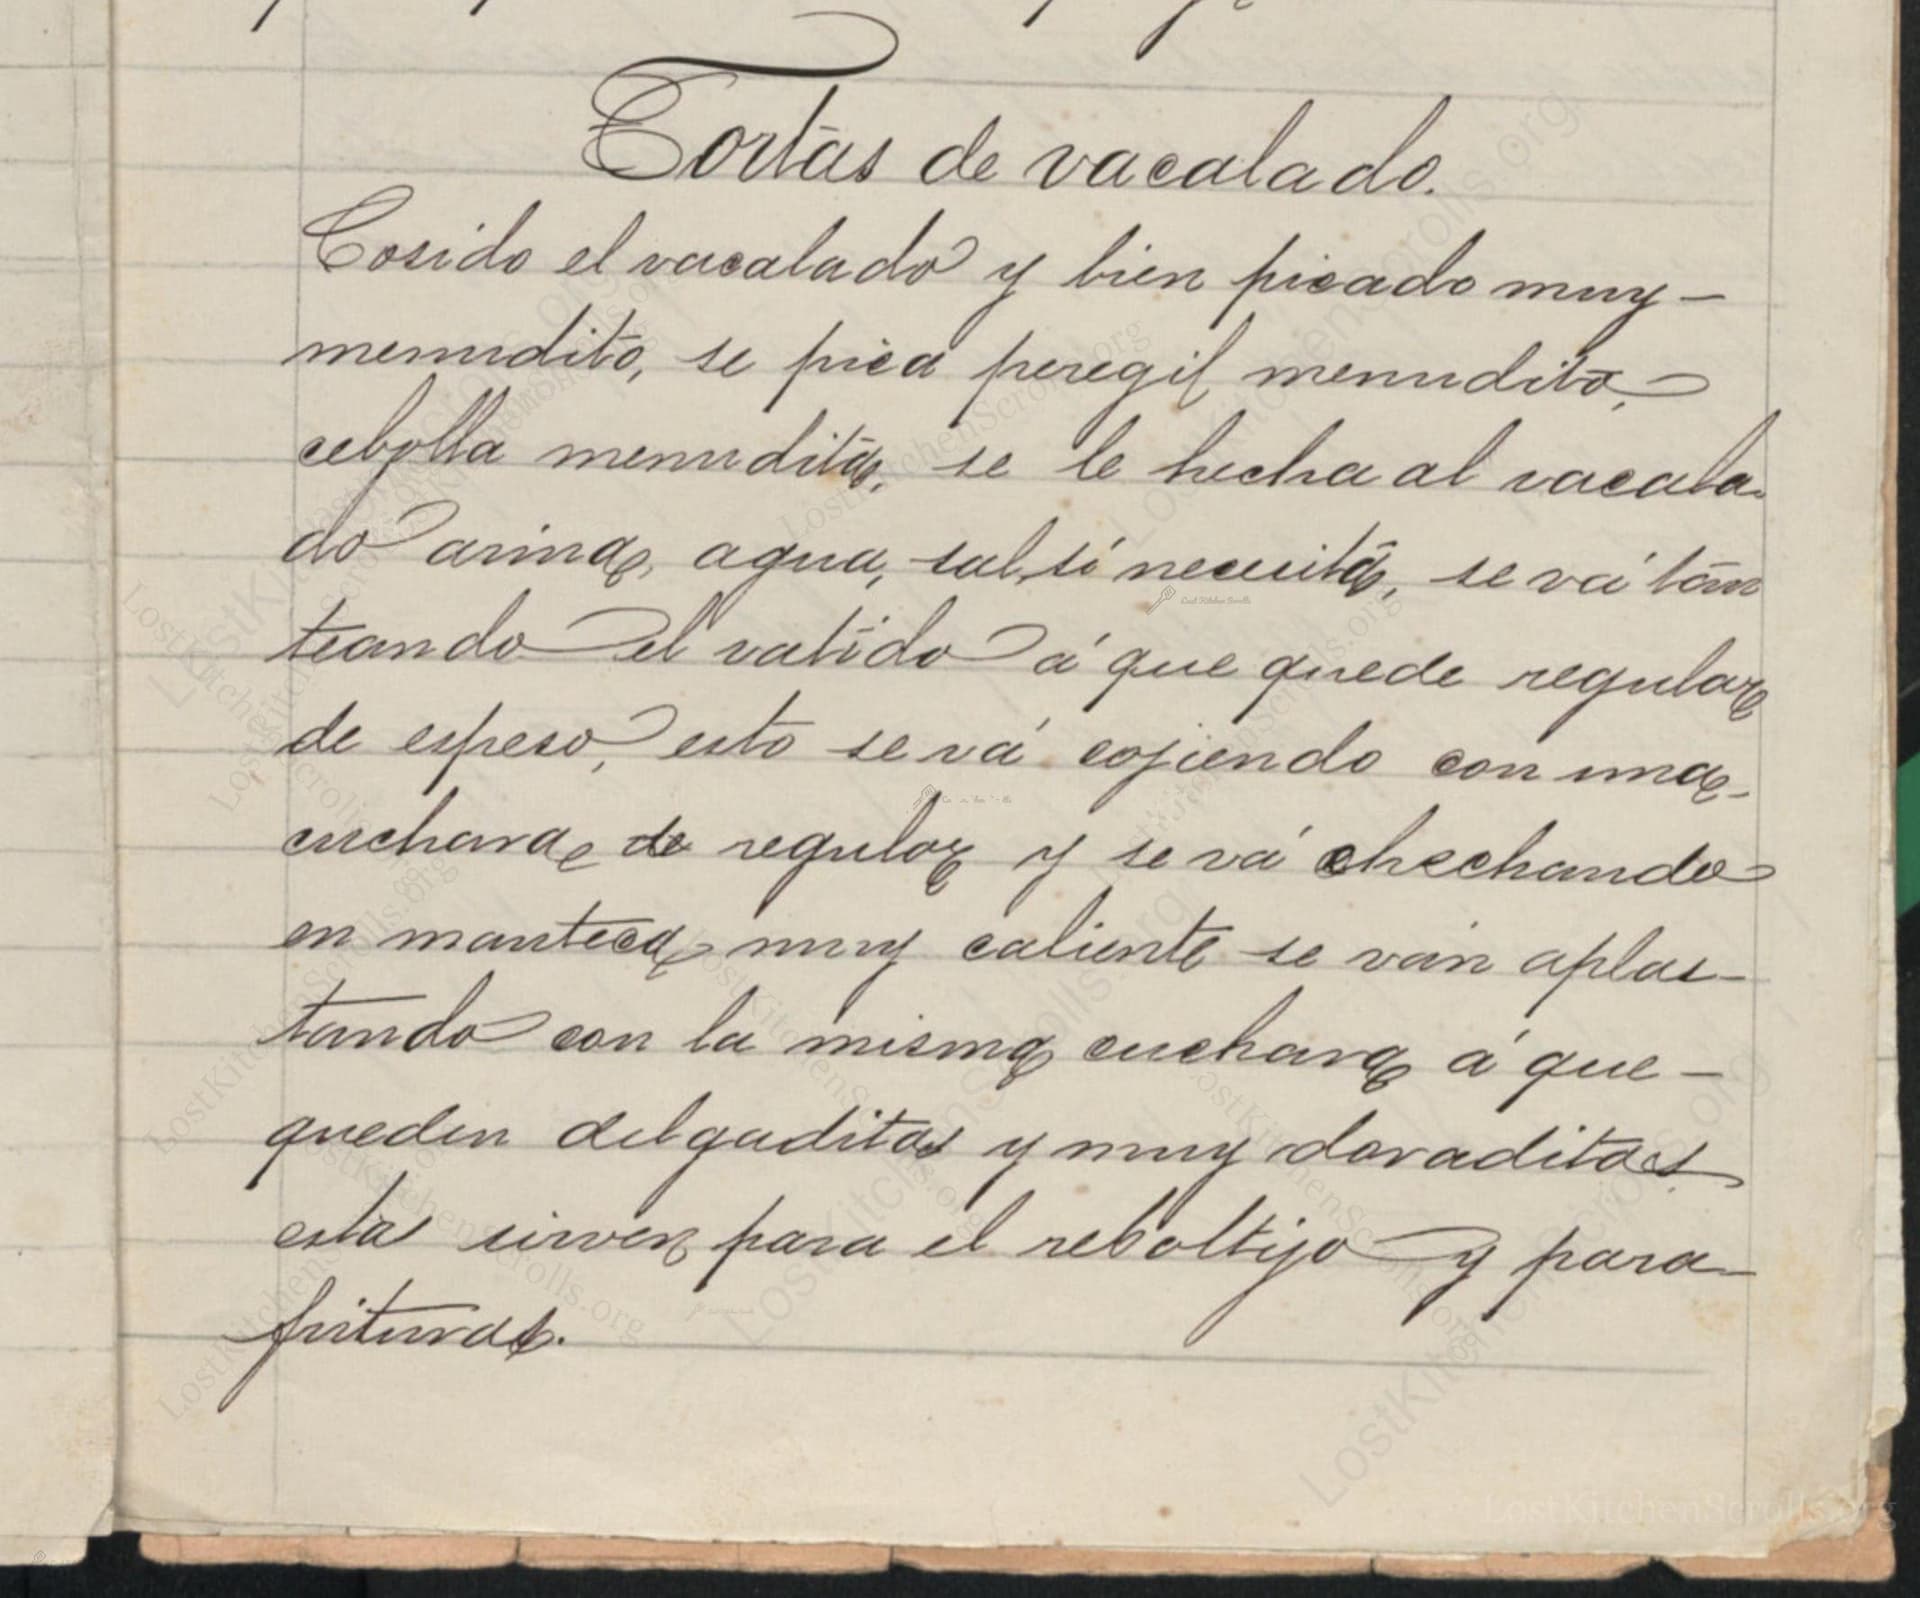 Tortas de vacalado.
Cosido el vacalado y bien picado muy-
menudito, se pica peregil menudito,
cebolla menudita, se le hecha al vacala-
do arina, agua, sal, si necesita, se vá tan
teando el vatido á que quede regular
de espeso, esto se vá cojiendo con una-
cuchara de regular y se vá hechando
en manteca muy caliente se ván aplas-
tando con la misma cuchara á que-
queden delgaditas y muy doraditas
estas sirven para el reboltijo y para-
frituras.
LostKitchenScrolls.org